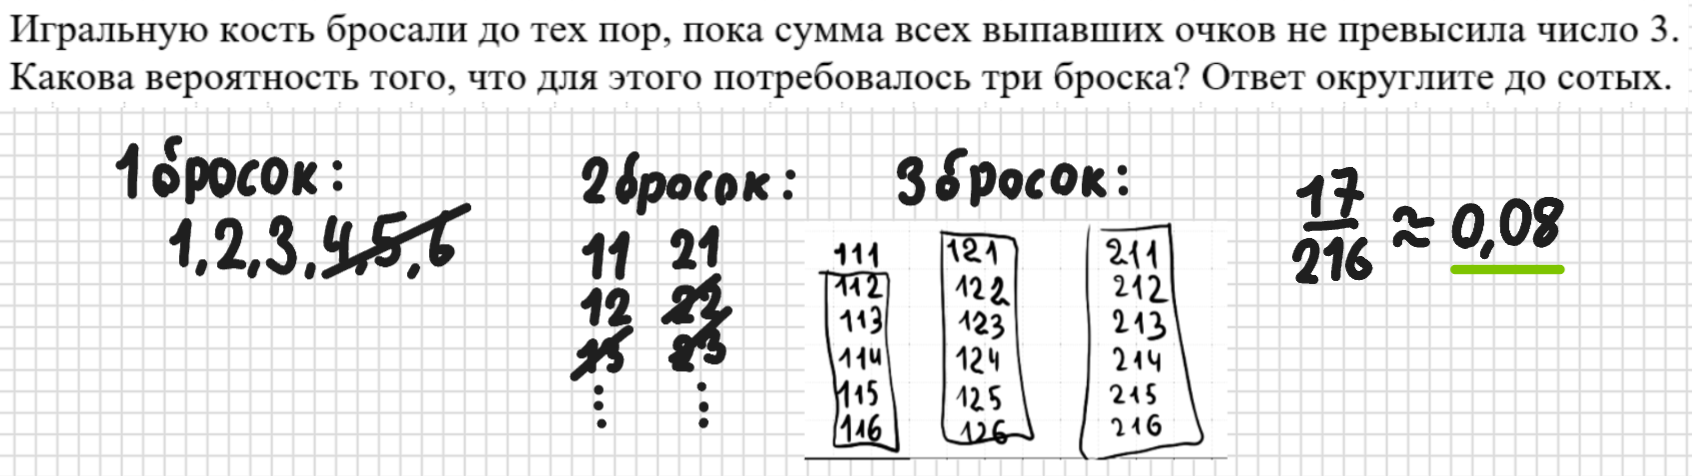 Игральную кость бросали до тех пор, пока сумма всех выпавших очков не превысила число 3.
Какова вероятность того, что для этого потребовалось три броска? Ответ округлите до сотых.
1 бросок:
1,2,3,4,5,6
2 бросок:
11 21
12 22
13 23
⋮ ⋮
3 бросок:
111 121 211
112 122 212
113 123 213
114 124 214
115 125 215
116 126 216
17/216 ≈ 0,08